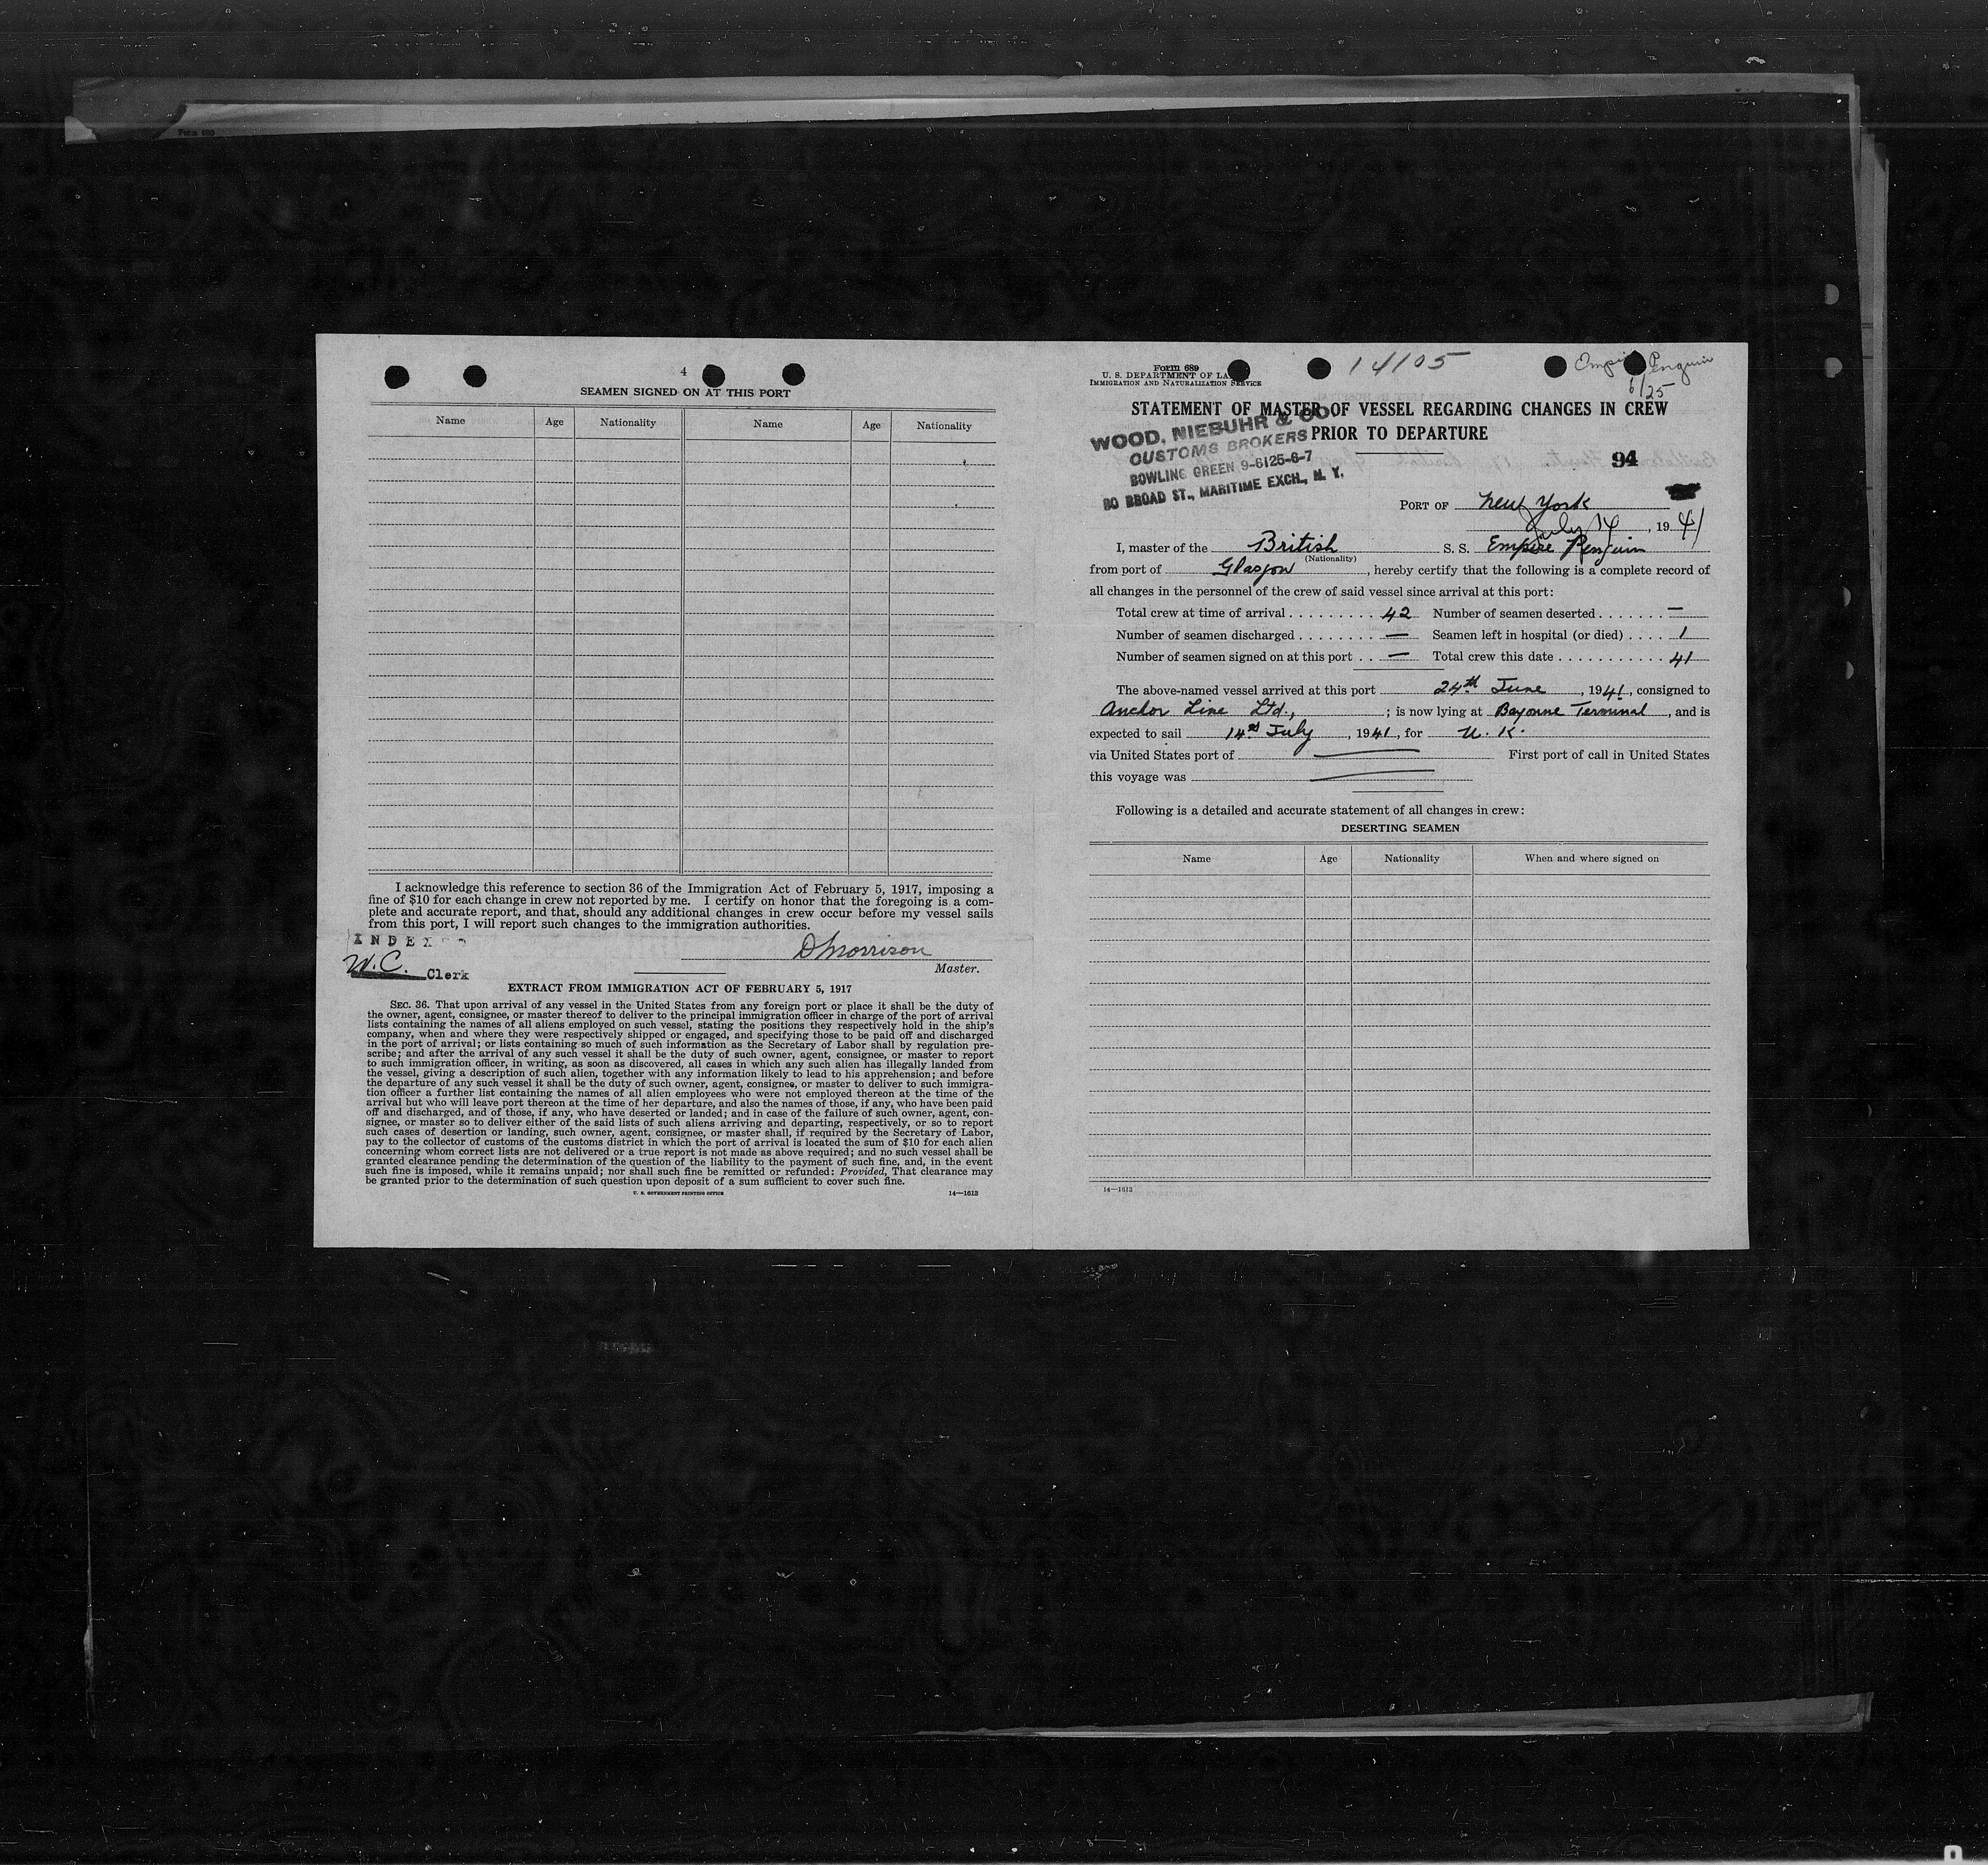 Form 689
4
SEAMEN SIGNED ON AT THIS PORT
Name Age Nationality Name Age Nationality
I acknowledge this reference to section 36 of the Immigration Act of February 5, 1917, imposing a
fine of $10 for each change in crew not reported by me. I certify on honor that the foregoing is a com-
plete and accurate report, and that, should any additional changes in crew occur before my vessel sails
from this port, I will report such changes to the immigration authorities.
INDEX
W.C. Clerk
D Morrison
Master.
EXTRACT FROM IMMIGRATION ACT OF FEBRUARY 5, 1917
SEC. 36. That upon arrival of any vessel in the United States from any foreign port or place it shall be the duty of
the owner, agent, consignee, or master thereof to deliver to the principal immigration officer in charge of the port of arrival
lists containing the names of all aliens employed on such vessel, stating the positions they respectively hold in the ship's
company, when and where they were respectively shipped or engaged, and specifying those to be paid off and discharged
in the port of arrival; or lists containing so much of such information as the Secretary of Labor shall by regulation pre-
scribe; and after the arrival of any such vessel it shall be the duty of such owner, agent, consignee, or master to report
to such immigration officer, in writing, as soon as discovered, all cases in which any such alien has illegally landed from
the vessel, giving a description of such alien, together with any information likely to lead to his apprehension; and before
the departure of any such vessel it shall be the duty of such owner, agent, consignee, or master to deliver to such immigra-
tion officer a further list containing the names of all alien employees who were not employed thereon at the time of the
arrival but who will leave port thereon at the time of her departure, and also the names of those, if any, who have been paid
off and discharged, and of those, if any, who have deserted or landed; and in case of the failure of such owner, agent, con-
signee, or master so to deliver either of the said lists of such aliens arriving and departing, respectively, or so to report
such cases of desertion or landing, such owner, agent, consignee, or master shall, if required by the Secretary of Labor,
pay to the collector of customs of the customs district in which the port of arrival is located the sum of $10 for each alien
concerning whom correct lists are not delivered or a true report is not made as above required; and no such vessel shall be
granted clearance pending the determination of the question of the liability to the payment of such fine, and, in the event
such fine is imposed, while it remains unpaid; nor shall such fine be remitted or refunded: Provided, That clearance may
be granted prior to the determination of such question upon deposit of a sum sufficient to cover such fine.
U. S. GOVERNMENT PRINTING OFFICE 14—1613
Form 689
U. S. DEPARTMENT OF LA
IMMIGRATION AND NATURALIZATION SERVICE
14105
Empire Penguin
6/25
STATEMENT OF MASTER OF VESSEL REGARDING CHANGES IN CREW
PRIOR TO DEPARTURE
WOOD, NIEBUHR & CO
CUSTOMS BROKERS
BOWLING GREEN 9-6125-6-7
80 BROAD ST., MARITIME EXCH., N. Y.
94
PORT OF New York
July 14, 1941
I, master of the British S. S. Empire Penguin
(Nationality)
from port of Glasgow, hereby certify that the following is a complete record of
all changes in the personnel of the crew of said vessel since arrival at this port:
Total crew at time of arrival . . . . . . . . . 42 Number of seamen deserted . . . . . . . —
Number of seamen discharged . . . . . . . . — Seamen left in hospital (or died) . . . . 1
Number of seamen signed on at this port . . — Total crew this date . . . . . . . . . . . 41
The above-named vessel arrived at this port 24th June, 1941, consigned to
Anchor Line Ltd., ; is now lying at Bayonne Terminal, and is
expected to sail 14th July, 1941, for U. K.
via United States port of — First port of call in United States
this voyage was —
Following is a detailed and accurate statement of all changes in crew:
DESERTING SEAMEN
Name Age Nationality When and where signed on
14—1613